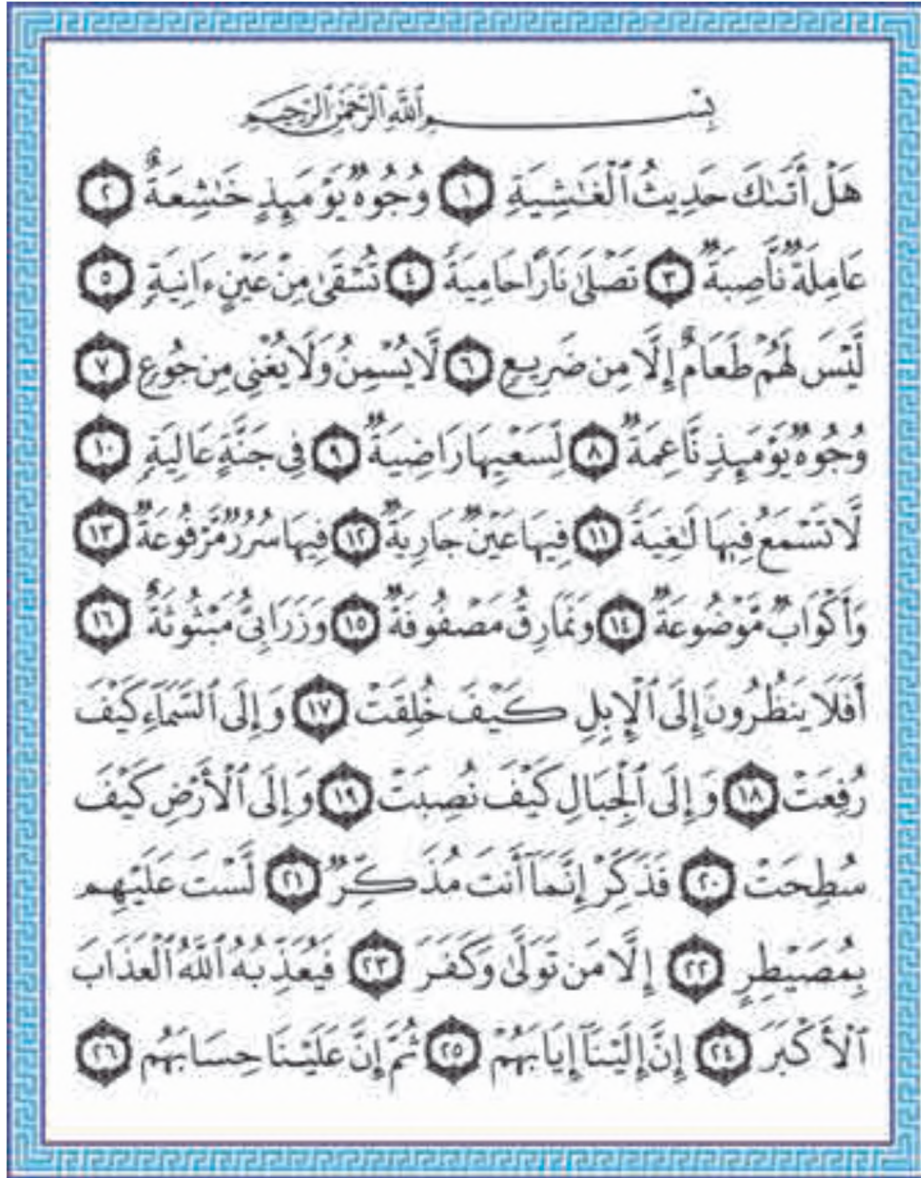 بِسْمِ ٱللَّهِ ٱلرَّحْمَٰنِ ٱلرَّحِيمِ
هَلْ أَتَىٰكَ حَدِيثُ ٱلْغَٰشِيَةِ ١ وُجُوهٌ يَوْمَئِذٍ خَٰشِعَةٌ ٢
عَامِلَةٌ نَّاصِبَةٌ ٣ تَصْلَىٰ نَارًا حَامِيَةً ٤ تُسْقَىٰ مِنْ عَيْنٍ ءَانِيَةٍ ٥
لَّيْسَ لَهُمْ طَعَامٌ إِلَّا مِن ضَرِيعٍ ٦ لَّا يُسْمِنُ وَلَا يُغْنِى مِن جُوعٍ ٧
وُجُوهٌ يَوْمَئِذٍ نَّاعِمَةٌ ٨ لِّسَعْيِهَا رَاضِيَةٌ ٩ فِى جَنَّةٍ عَالِيَةٍ ١٠
لَّا تَسْمَعُ فِيهَا لَٰغِيَةً ١١ فِيهَا عَيْنٌ جَارِيَةٌ ١٢ فِيهَا سُرُرٌ مَّرْفُوعَةٌ ١٣
وَأَكْوَابٌ مَّوْضُوعَةٌ ١٤ وَنَمَارِقُ مَصْفُوفَةٌ ١٥ وَزَرَابِىُّ مَبْثُوثَةٌ ١٦
أَفَلَا يَنظُرُونَ إِلَى ٱلْإِبِلِ كَيْفَ خُلِقَتْ ١٧ وَإِلَى ٱلسَّمَآءِ كَيْفَ
رُفِعَتْ ١٨ وَإِلَى ٱلْجِبَالِ كَيْفَ نُصِبَتْ ١٩ وَإِلَى ٱلْأَرْضِ كَيْفَ
سُطِحَتْ ٢٠ فَذَكِّرْ إِنَّمَآ أَنتَ مُذَكِّرٌ ٢١ لَّسْتَ عَلَيْهِم
بِمُصَيْطِرٍ ٢٢ إِلَّا مَن تَوَلَّىٰ وَكَفَرَ ٢٣ فَيُعَذِّبُهُ ٱللَّهُ ٱلْعَذَابَ
ٱلْأَكْبَرَ ٢٤ إِنَّ إِلَيْنَآ إِيَابَهُمْ ٢٥ ثُمَّ إِنَّ عَلَيْنَا حِسَابَهُم ٢٦